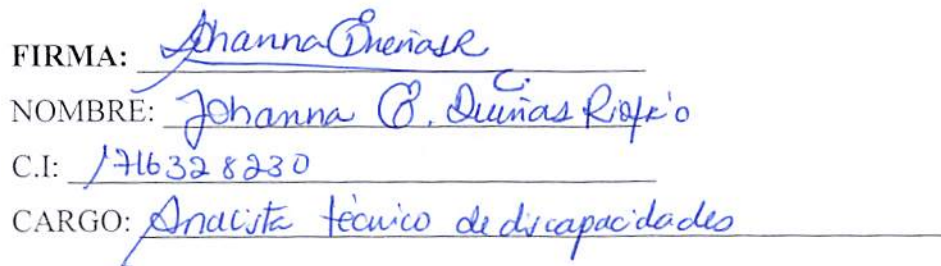 FIRMA: Johanna Dueñas R
NOMBRE: Johanna C. Dueñas Riofrío
C.I: 1716328230
CARGO: Analista técnico de discapacidades